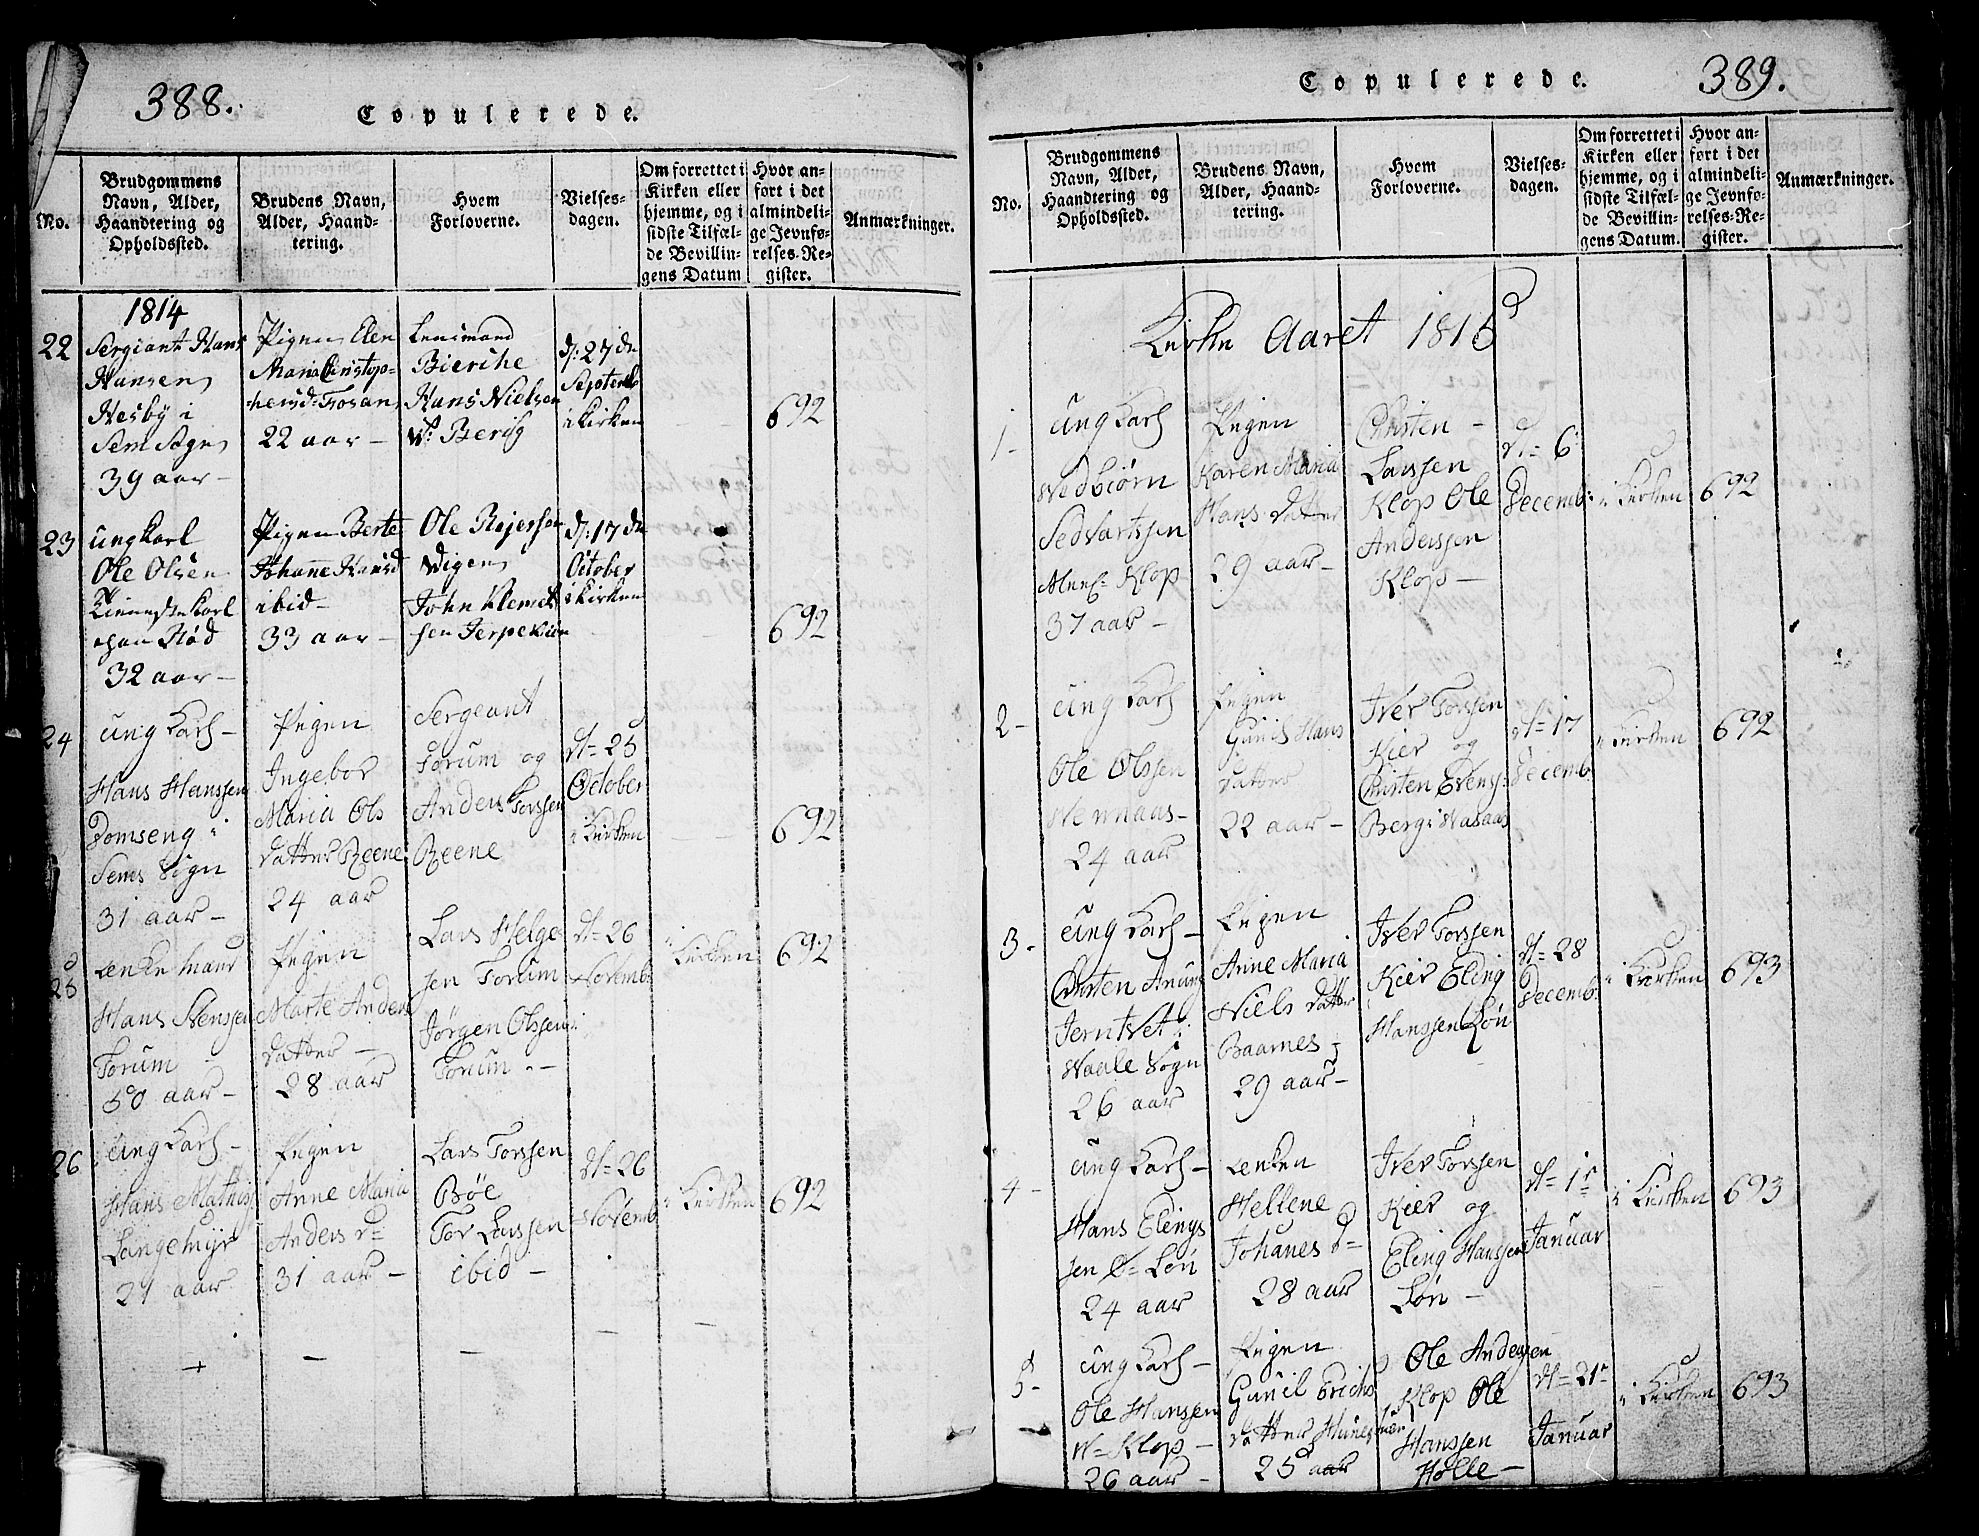 388.
Copulerede.
No.
Brudgommens
Navn, Alder,
Haandtering og
Opholdssted.
Brudens Navn,
Alder, Haand-
tering.
Hvem
Forloverne.
Vielses-
dagen.
Om forrettet i
Kirken eller
hjemme, og i
sidste Tilfæl-
de Bevillin-
gens Datum
Hvor an-
ført i det
almindeli-
ge Jevnfø-
relses-Re-
gister.
Anmærkninger.
1814
22
Sergiant Hans
Hansen
Hesby i
Sem Sogn
39 aar -
Pigen Elen
Maria Cristop=
hersd: Frosan
22 aar -
Lensmand
Bierche
Hans Nielsen
W: Berig
d: 27 de
Septemb
i Kirken
692
23
ungkarl
Ole Olsen
Karl
Rød
32 aar -
Pigen Berte
Johanne Hansd
ibid -
33 aar -
Ole Rejersen
Wigen
John Klemet
sen Jerpekiøn
d: 17 de
October
i Kirken
692
24
ung Karl -
Hans Hanssen
Domseng i
Sems Sogn
31 aar -
Pigen
Ingebor
Maria Ols
datter Reene
24 aar
Sergeant
Forum og
Anders Torssen
Reene
d= 25
October
i Kirken
692
25
Enke mand
Hans Stenssen
Forum
50 aar -
Pigen
Marte Anders
datter -
28 aar
Lars Helge
sen Forum
Jörgen Olssen
Forum -
d= 26
Novemb
i Kirken
692
26
ung Karl -
Hans Mathis
Langemÿr
27 aar
Pigen
Anne Maria
Anders d=
31 aar -
Lars Torssen
Böe
Tor Larssen
ibid -
d= 26
Novemb
i Kirken
692
389.
Copulerede.
No.
Brudgommens
Navn, Alder,
Haandtering og
Opholdssted.
Brudens Navn,
Alder, Haand-
tering.
Hvem
Forloverne.
Vielses-
dagen.
Om forrettet i
Kirken eller
hjemme, og i
sidste Tilfæl-
de Bevillin-
gens Datum.
Hvor an-
ført i det
almindeli-
ge Jevnfø-
relses-Re-
gister.
Anmærkninger.
Kirke Aaret 1815
1-
ung Karl
Wedbiörn
Sedvartssen
Klop
37 aar -
Pigen
Karen Maria
Hans datter
29 aar -
Christen -
Larssen
Klop Ole
Anderssen
Klop -
d= 6
Decemb:
i Kirken
692
2-
ung Karl
Ole Olssen
Wennaas -
24 aar
Pigen
Gunil Hans
datter
22 aar -
Iver Torssen
Kier og
Christen Evens:
Berg i Wasaas
d= 17
Decemb
i Kirken
692
3-
ung Karl -
Christen Anung
Jerntvet i
Waale Sogn
26 aar
Pigen
Anne Maria
Niels datter
Baarnes -
29 aar -
Iver Torssen
Kier Eling
Hanssen Lön
d= 28
Decemb:
i Kirken
693
4-
ung Karl -
Hans Elings
sen Ø= Lön
24 aar
Enken
Hellene
Johanes d=
28 aar
Iver Torssen
Kier og
Eling Hanssen
Lön -
d= 1
Januar
i Kirken
693
5-
ung Karl -
Ole Hansen
W= Klop -
26 aar -
Pigen
Gunil Erichs
datter
25 aar
Ole Anderssen
Klop Ole
Hanssen
Holle -
d= 21
Januar
i Kirken
693